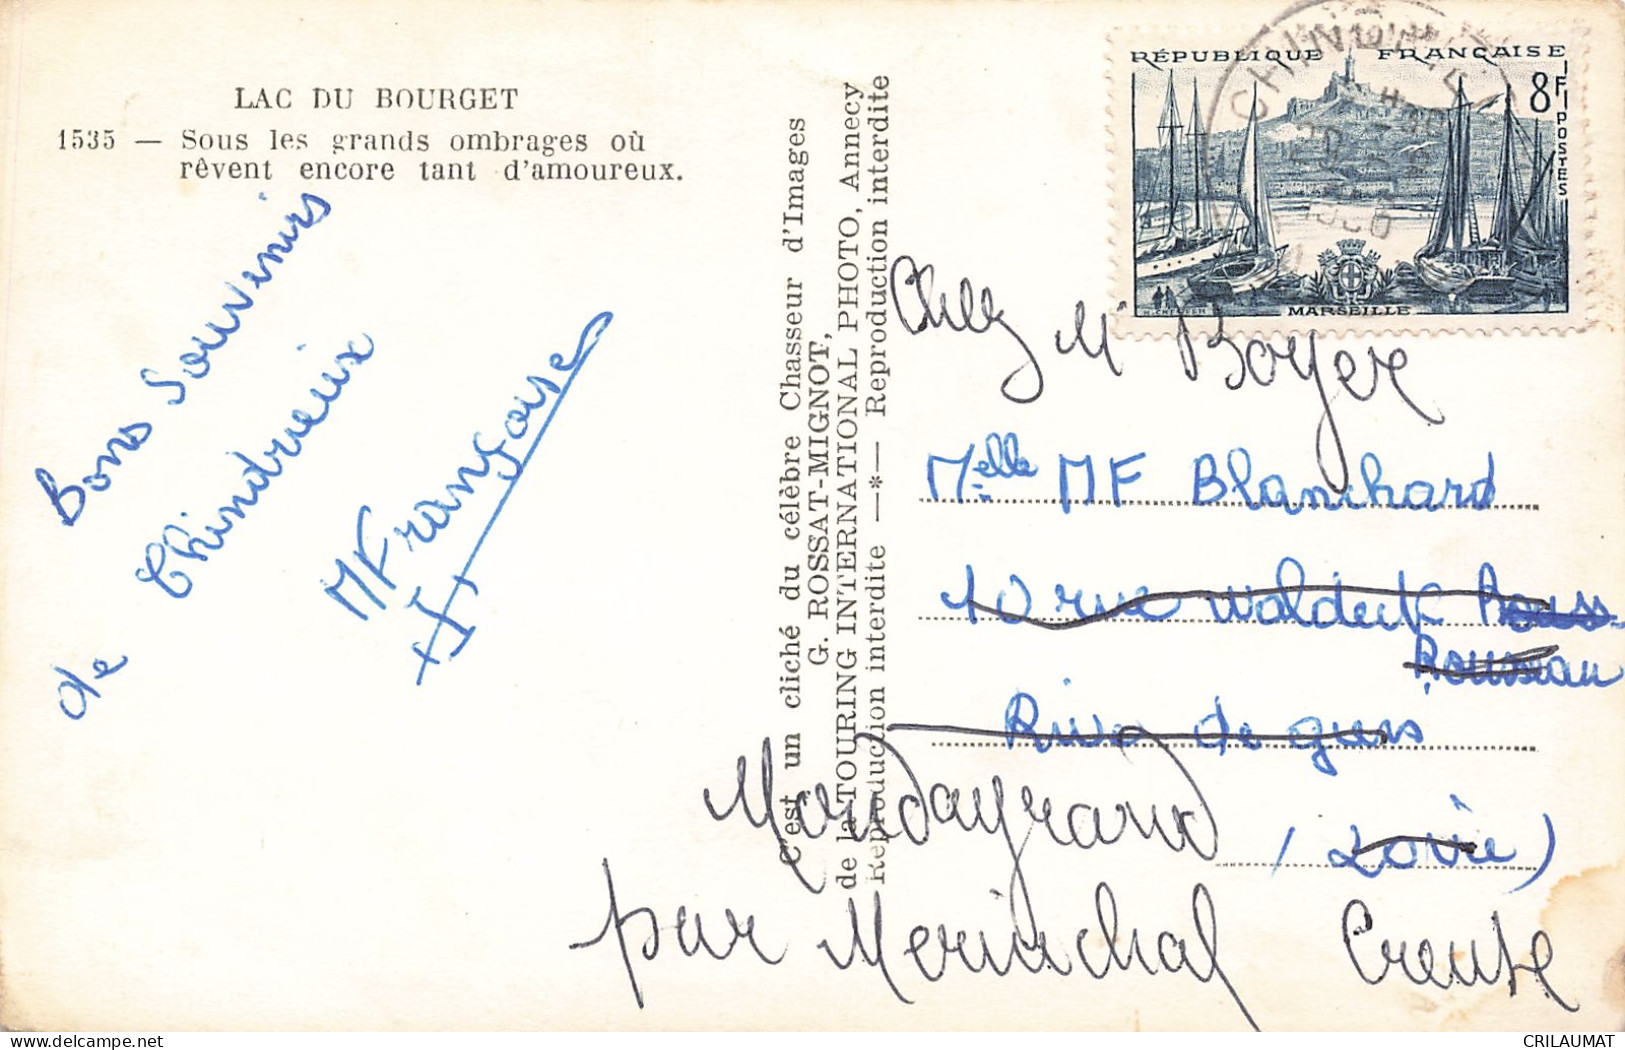 LAC DU BOURGET
1535 — Sous les grands ombrages où
rêvent encore tant d'amoureux.
Bons Souvenirs
de Chindrieux
MFrançoise
C'est un cliché du célèbre Chasseur d'Images
G. ROSSAT-MIGNOT,
de la TOURING INTERNATIONAL PHOTO, Annecy
Reproduction interdite —*— Reproduction interdite
RÉPUBLIQUE FRANÇAISE
8F
POSTES
MARSEILLE
Chez Mr Boyer
Melle MF Blanchard
10 rue Waldeck Rouss-
Rousseau
Rive de giers
(Loire)
par Merinchal Creuse
delcampe.net
CRILAUMAT